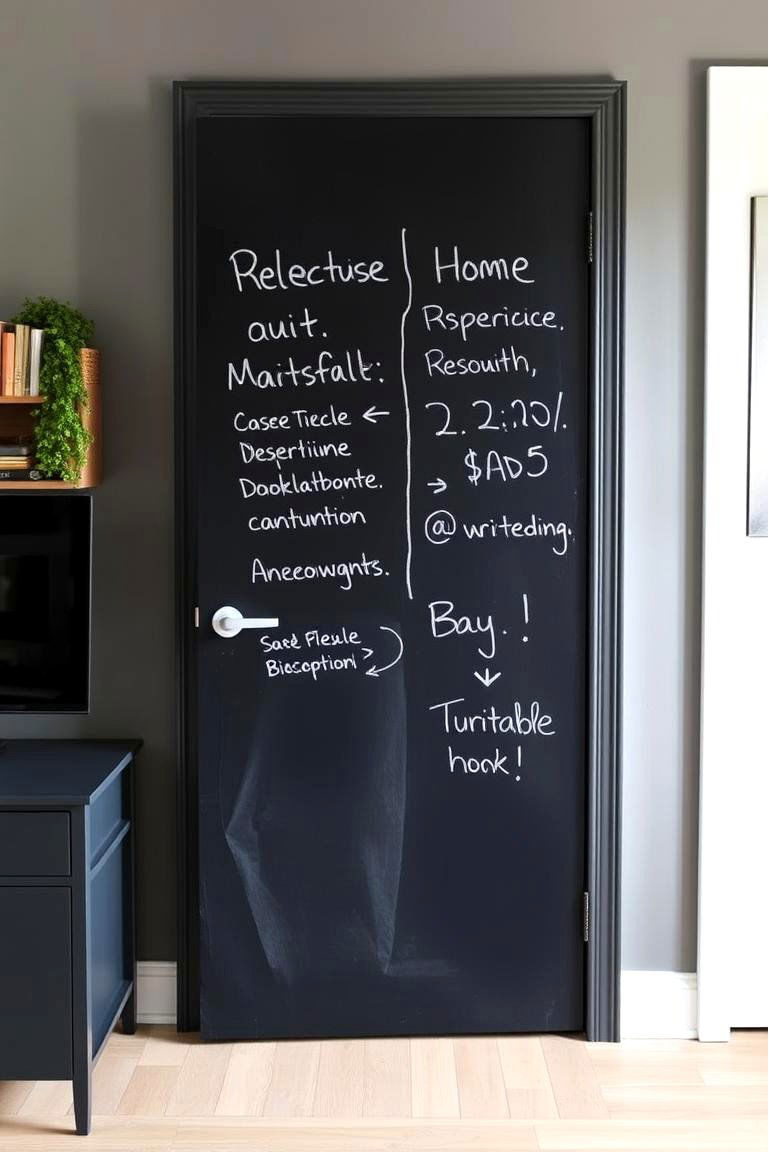 Relectuse
auit.
Maitsfalt:
Casee Tiecle ←
Desertiine
Dooklatbonte.
cantuntion
Aneeowgnts.
Saté Flesule
Bioscoption
Home
Rspericice.
Resouith,
2. 2:20%.
→ $AD5
@ writeding.
Bay. !
↓
Turitable
honk!